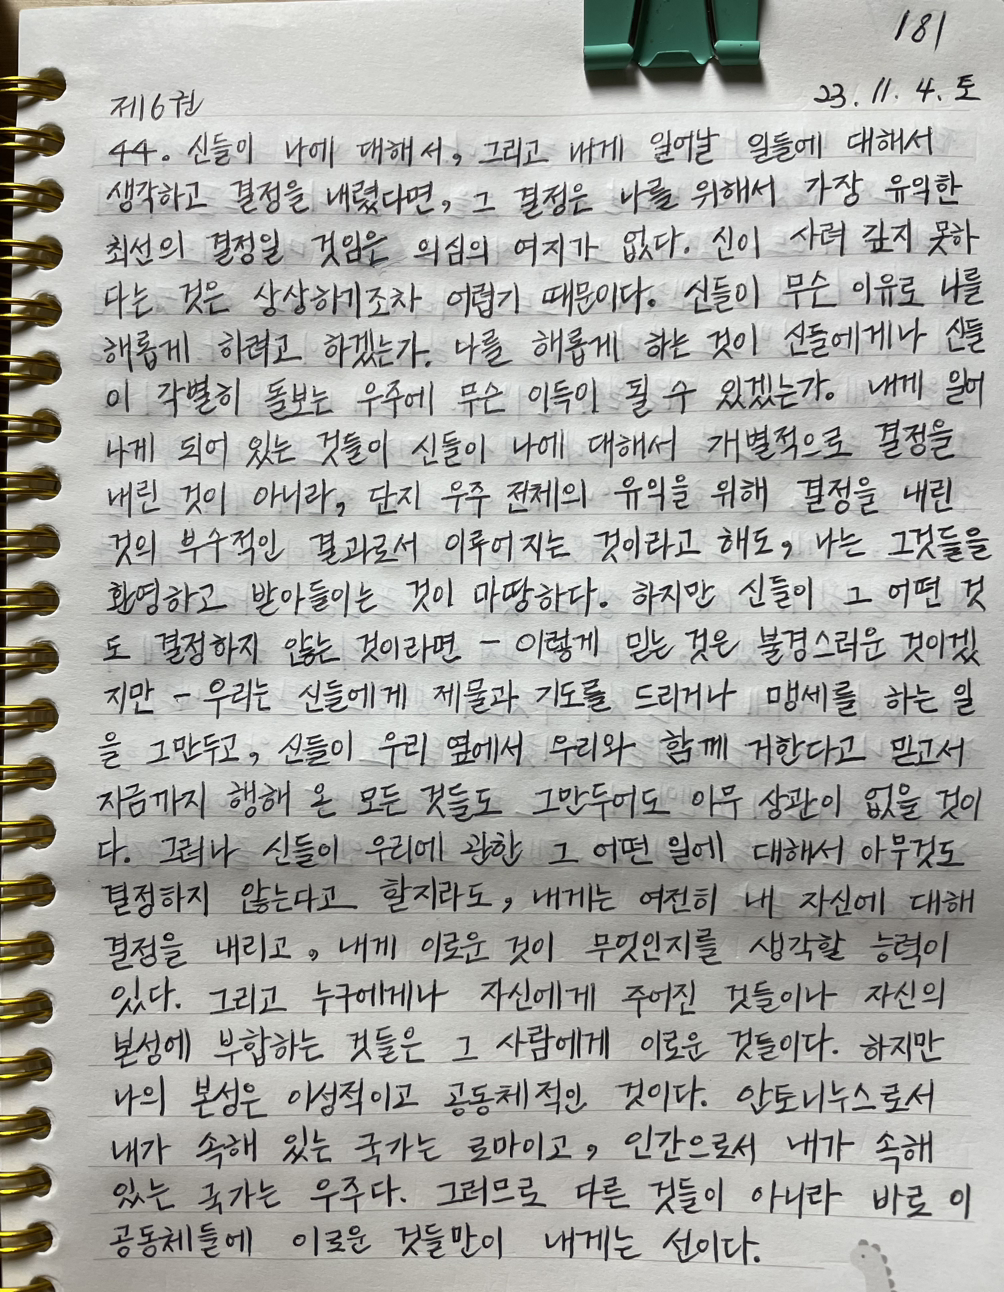 181
23. 11. 4. 토
제6권
44. 신들이 나에 대해서, 그리고 내게 일어날 일들에 대해서
생각하고 결정을 내렸다면, 그 결정은 나를 위해서 가장 유익한
최선의 결정일 것임은 의심의 여지가 없다. 신이 사려 깊지 못하
다는 것은 상상하기조차 어렵기 때문이다. 신들이 무슨 이유로 나를
해롭게 하려고 하겠는가. 나를 해롭게 하는 것이 신들에게나 신들
이 각별히 돌보는 우주에 무슨 이득이 될 수 있겠는가. 내게 일어
나게 되어 있는 것들이 신들이 나에 대해서 개별적으로 결정을
내린 것이 아니라, 단지 우주 전체의 유익을 위해 결정을 내린
것의 부수적인 결과로서 이루어지는 것이라고 해도, 나는 그것들을
환영하고 받아들이는 것이 마땅하다. 하지만 신들이 그 어떤 것
도 결정하지 않는 것이라면 - 이렇게 믿는 것은 불경스러운 것이겠
지만 - 우리는 신들에게 제물과 기도를 드리거나 맹세를 하는 일
을 그만두고, 신들이 우리 옆에서 우리와 함께 거한다고 믿고서
지금까지 행해 온 모든 것들도 그만두어도 아무 상관이 없을 것이
다. 그러나 신들이 우리에 관한 그 어떤 일에 대해서 아무것도
결정하지 않는다고 할지라도, 내게는 여전히 내 자신에 대해
결정을 내리고, 내게 이로운 것이 무엇인지를 생각할 능력이
있다. 그리고 누구에게나 자신에게 주어진 것들이나 자신의
본성에 부합하는 것들은 그 사람에게 이로운 것들이다. 하지만
나의 본성은 이성적이고 공동체적인 것이다. 안토니누스로서
내가 속해 있는 국가는 로마이고, 인간으로서 내가 속해
있는 국가는 우주다. 그러므로 다른 것들이 아니라 바로 이
공동체들에 이로운 것들만이 내게는 선이다.